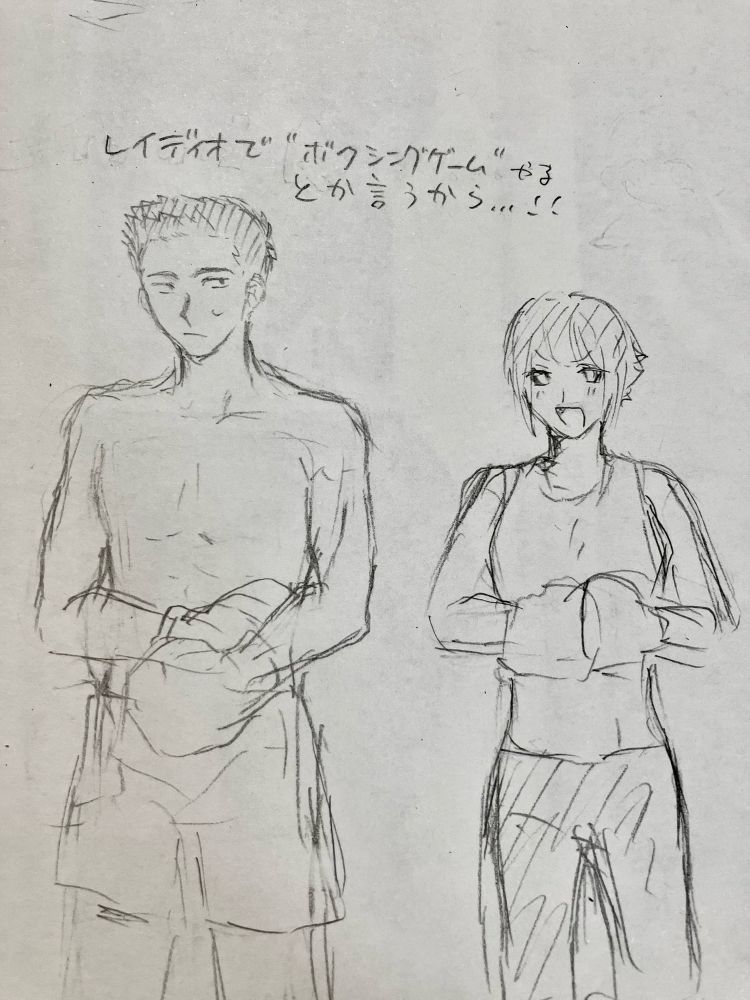 レイディオで"ボクシングゲーム"やる
とか言うから...!!